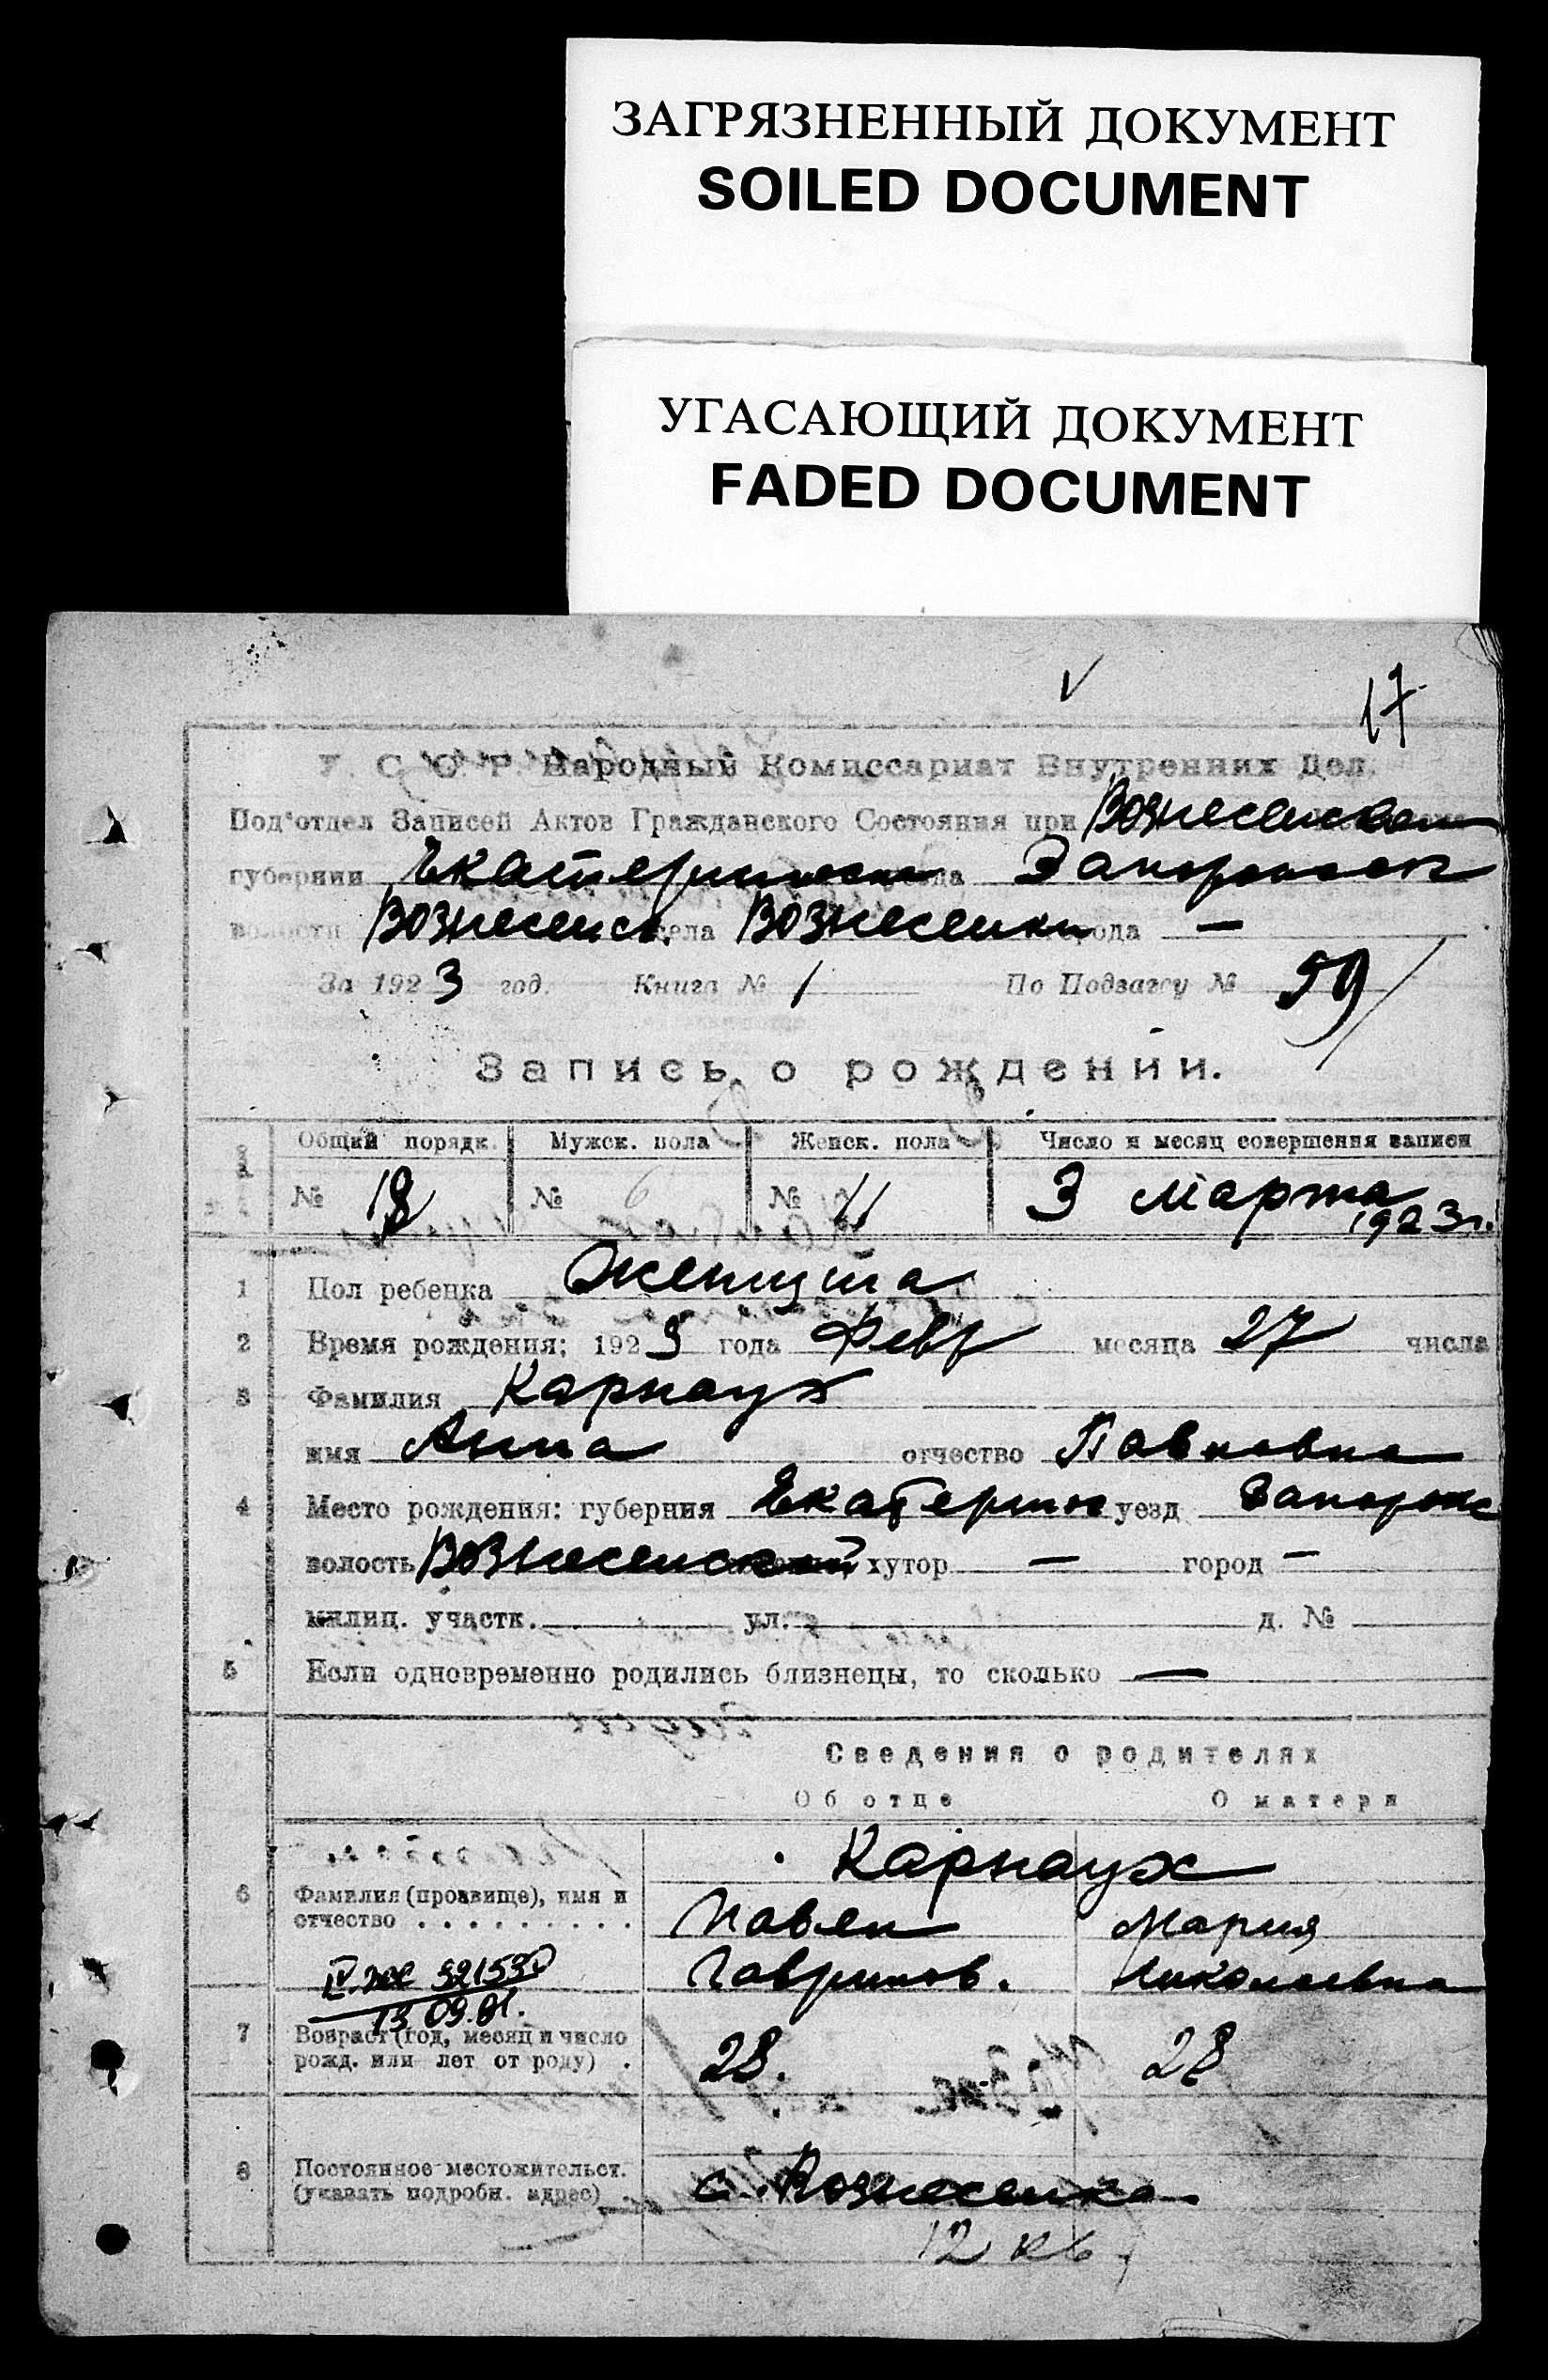 ЗАГРЯЗНЕННЫЙ ДОКУМЕНТ
SOILED DOCUMENT
УГАСАЮЩИЙ ДОКУМЕНТ
FADED DOCUMENT
17
У. С. С. Р. Народный Комиссариат Внутренних Дел.
Под'отдел Записей Актов Гражданского Состояния при Вознесенском
губернии Екатеринослав уезда Запорожск
волости Вознесенск. села Вознесенки города —
За 1923 год. Книга № 1 По Подзагсу № 59
Запись о рождении.
Общий порядк. Мужск. пола Женск. пола Число и месяц совершения записи
№ 18 № 6 № 11 3 марта 1923 г.
1 Пол ребенка Женщина
2 Время рождения: 1923 года Февр месяца 27 числа
3 Фамилия Карнаух
имя Анна отчество Павловна
4 Место рождения: губерния Екатеринос уезд Запорожс
волость Вознесенской хутор — город —
милиц. участк. ул. д. №
5 Если одновременно родились близнецы, то сколько —
Сведения о родителях
Об отце О матери
Карнаух
6 Фамилия (прозвище), имя и Павел Мария
отчество . . . . . . . . .
Гаврилов. Николаевна
13 09.81.
7 Возраст (год, месяц и число 28. 28
рожд. или лет от роду) .
8 Постоянное местожительст. с. Вознесенка
(указать подробн. адрес)
12 кв.